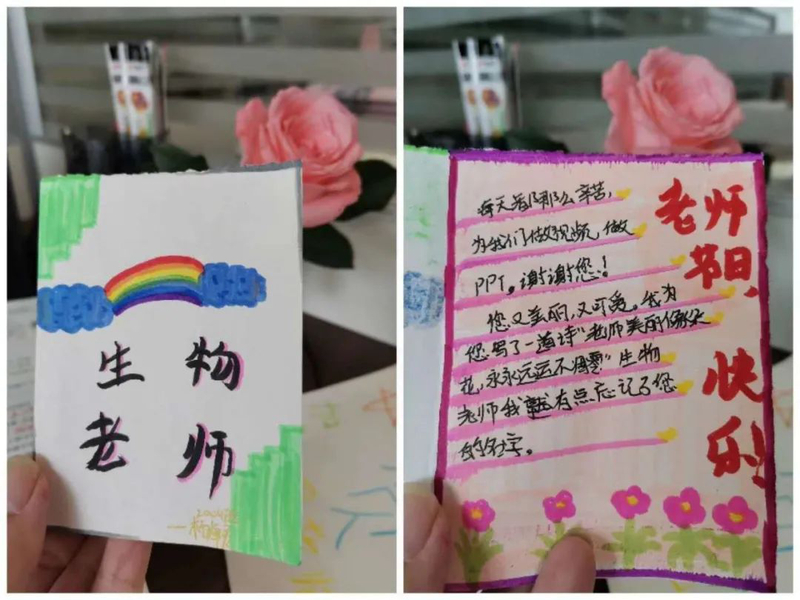 生物
老师
每天都那么辛苦,
为我们做视频,做
PPT。谢谢您!
您又美丽,又可爱。我为
您写了一道诗"老师美丽像朵
花,永永远远不凋零"生物
老师我就有点忘记了您
的名字。
老师
节日
快
乐!